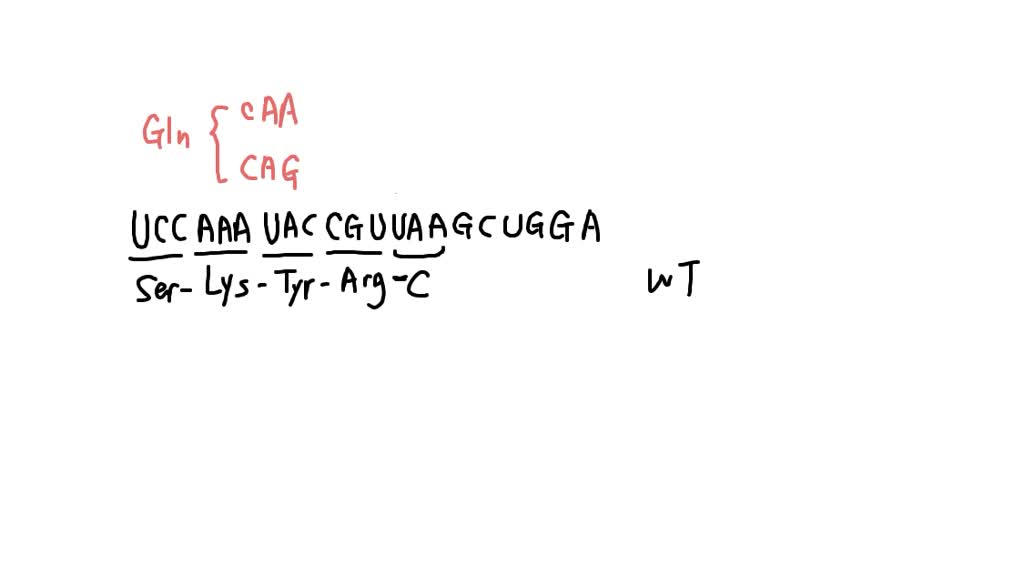 Gln { CAA
CAG
UCC AAA UAC CGU UAA G C U G G A
Ser - Lys - Tyr - Arg - C
WT